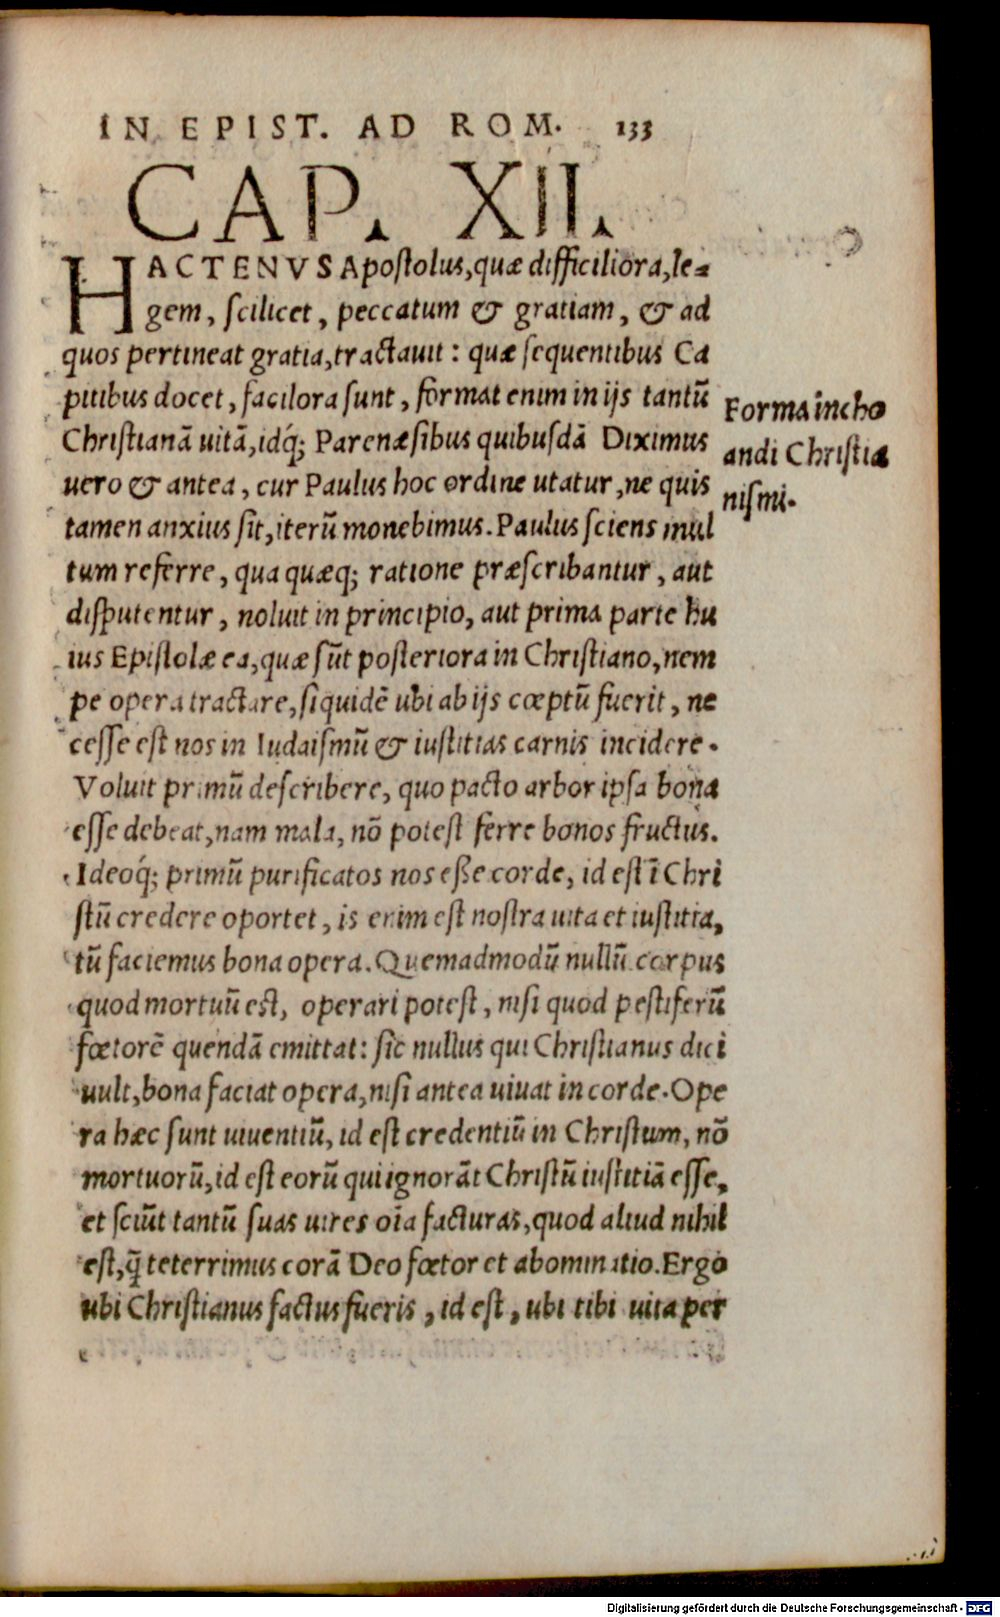 IN EPIST. AD ROM. 133
CAP. XII.
HACTENVS Apostolus, quæ difficiliora, le-
gem, scilicet, peccatum & gratiam, & ad
quos pertineat gratia, tractauit: quæ sequentibus Ca
pitibus docet, facilora sunt, format enim in ijs tantũ
Christianã uitã, idq́; Parenæsibus quibusdã Diximus
uero & antea, cur Paulus hoc ordine utatur, ne quis
tamen anxius sit, iterũ monebimus. Paulus sciens mul
tum referre, qua quæq; ratione præscribantur, aut
disputentur, noluit in principio, aut prima parte hu
ius Epistolæ ea, quæ sũt posteriora in Christiano, nem
pe opera tractare, siquidẽ ubi ab ijs cœptũ fuerit, ne
cesse est nos in Iudaismũ & iustitias carnis incidere.
Voluit primũ describere, quo pacto arbor ipsa bona
esse debeat, nam mala, nõ potest ferre bonos fructus.
Ideoq́; primũ purificatos nos eße corde, id est ĩ Chri
stũ credere oportet, is enim est nostra uita et iustitia,
tũ faciemus bona opera. Quemadmodũ nullũ corpus
quod mortuũ est, operari potest, nisi quod pestiferũ
fœtorẽ quendã emittat: sic nullus qui Christianus dici
uult, bona faciat opera, nisi antea uiuat in corde. Ope
ra hæc sunt uiuentiũ, id est credentiũ in Christum, nõ
mortuorũ, id est eorũ qui ignorãt Christũ iustitiã esse,
et sciũt tantũ suas uires oĩa facturas, quod aliud nihil
est, q̃ teterrimus corã Deo fœtor et abominatio. Ergo
ubi Christianus factus fueris, id est, ubi tibi uita per
Forma incho
andi Christia
nismi.
Digitalisierung gefördert durch die Deutsche Forschungsgemeinschaft - DFG